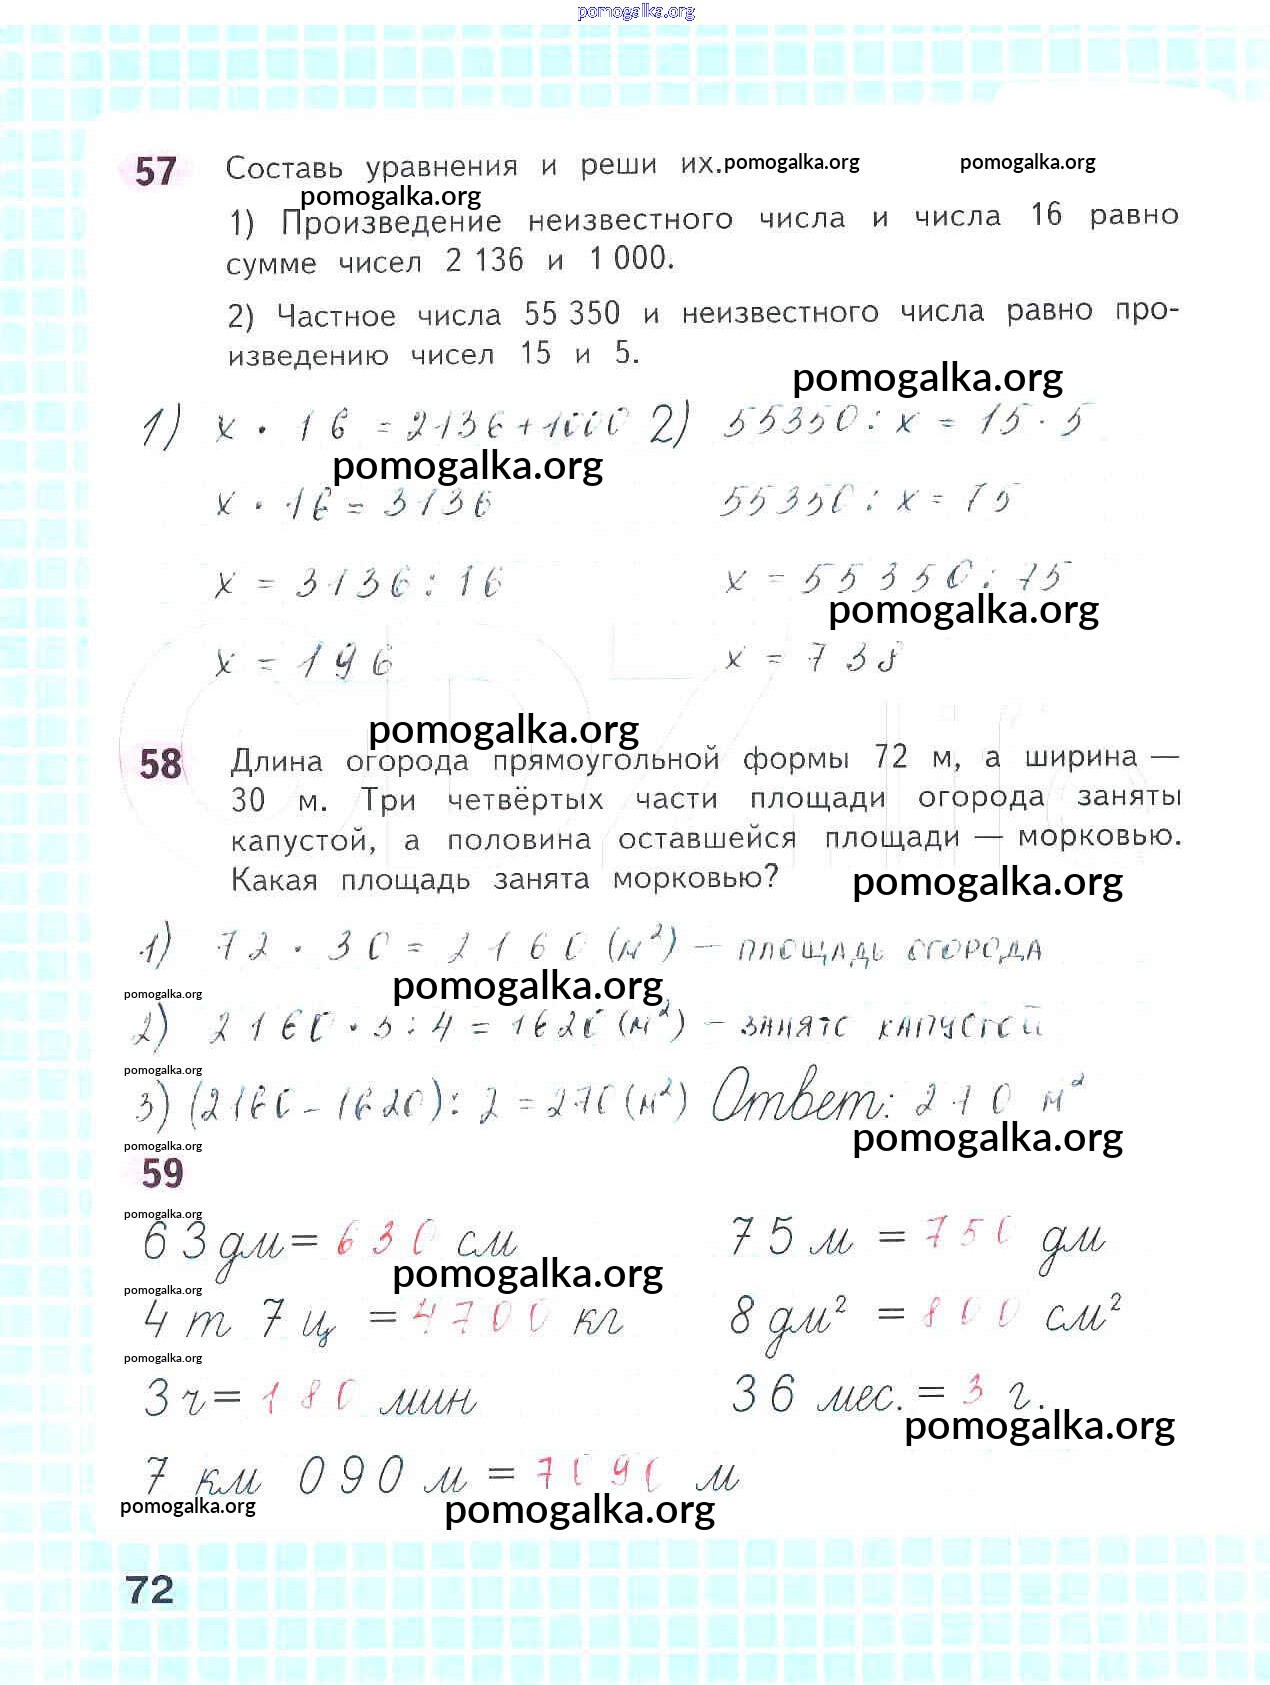 pomogalka.org
57 Составь уравнения и реши их. pomogalka.org pomogalka.org
pomogalka.org
1) Произведение неизвестного числа и числа 16 равно
сумме чисел 2 136 и 1 000.
2) Частное числа 55 350 и неизвестного числа равно про-
изведению чисел 15 и 5.
pomogalka.org
1) x · 16 = 2136 + 1000 2) 55350 : x = 15 · 5
pomogalka.org
x · 16 = 3136 55350 : x = 75
x = 3136 : 16 x = 55350 : 75
pomogalka.org
x = 196 x = 738
pomogalka.org
58 Длина огорода прямоугольной формы 72 м, а ширина —
30 м. Три четвёртых части площади огорода заняты
капустой, а половина оставшейся площади — морковью.
Какая площадь занята морковью?
pomogalka.org
1) 72 · 30 = 2160 (м²) – площадь огорода
pomogalka.org pomogalka.org
2) 2160 · 3 : 4 = 1620 (м²) – занято капустой
pomogalka.org
3) (2160 – 1620) : 2 = 270 (м²) Ответ: 270 м²
pomogalka.org pomogalka.org
59
pomogalka.org
63 дм = 630 см 75 м = 750 дм
pomogalka.org
pomogalka.org
4 т 7 ц = 4700 кг 8 дм² = 800 см²
pomogalka.org
3 ч = 180 мин 36 мес. = 3 г.
pomogalka.org
7 км 090 м = 7090 м
pomogalka.org pomogalka.org
72